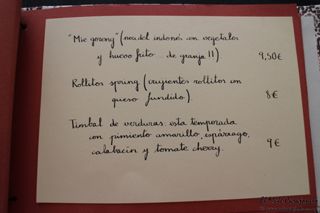 "Mie goreng" (noodel indonés con vegetales
y huevo frito de granja !!) 9,50€
Rollitos spring (crujientes rollitos con
queso fundido). 8€
Timbal de verduras: esta temporada
con pimiento amarillo, espárrago,
calabacín y tomate cherry. 9€